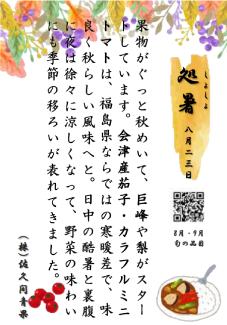 処暑
しょしょ
八月二三日
8月・9月
旬の品目
果物がぐっと秋めいて、巨峰や梨がスター
トしています。会津産茄子・カラフルミニ
トマトは、福島県ならではの寒暖差で、味
良く秋らしい風味へと。日中の酷暑と裏腹
に夜は徐々に涼しくなって、野菜の味わい
にも季節の移ろいが表れてきました。
(株)佐久間青果